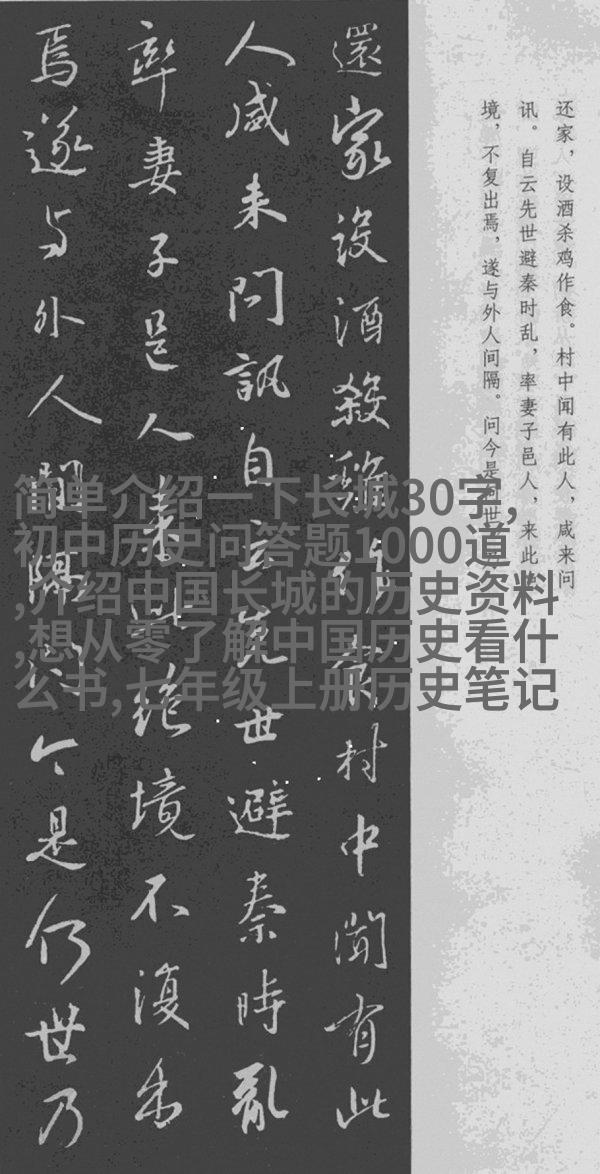 还家，设酒杀鸡作食。村中闻有此人，咸来问
讯。自云先世避秦时乱，率妻子邑人，来此
境，不复出焉，遂与外人间隔。问今是何世
還家設酒殺雞作食村中聞有此
人咸来問訊自云先世避秦時亂
率妻子邑人来此絶境不復出
焉遂与外人間隔問今是何世乃
简单介绍一下长城30字,
初中历史问答题1000道
,介绍中国长城的历史资料
,想从零了解中国历史看什
么书,七年级上册历史笔记